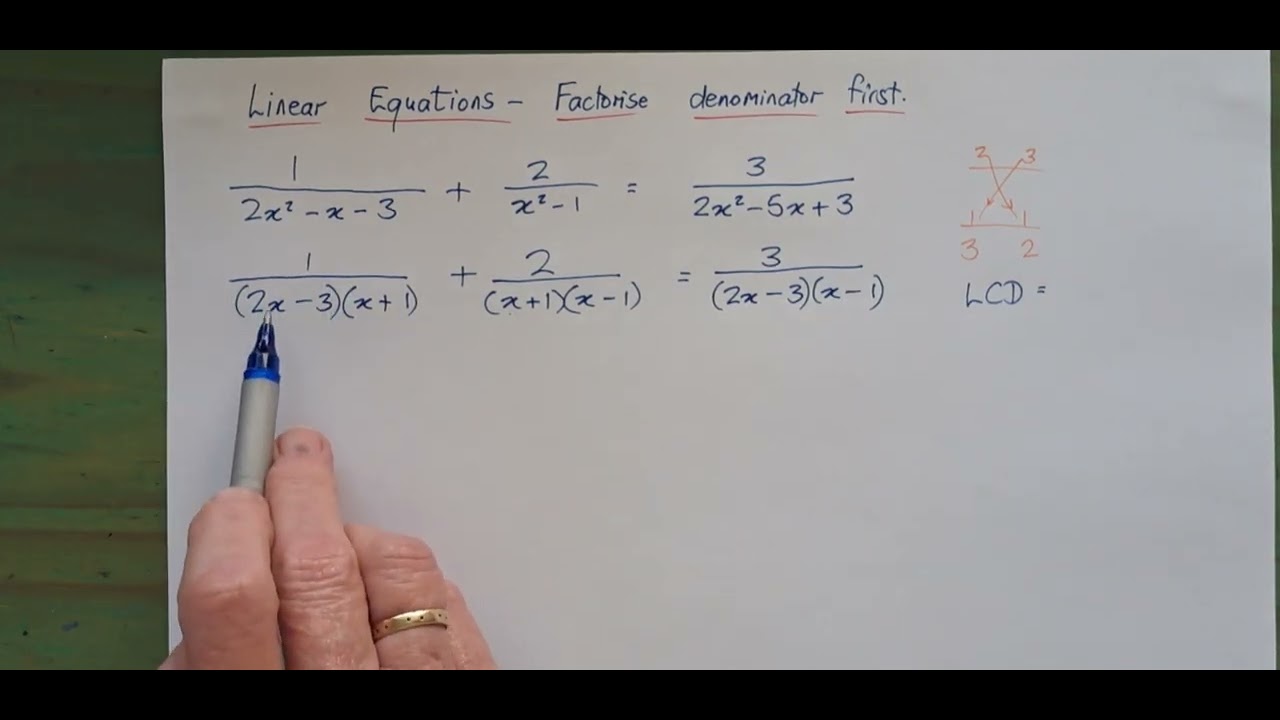 Linear Equations - Factorise denominator first.
1/(2x² - x - 3) + 2/(x² - 1) = 3/(2x² - 5x + 3)
2 3
1 1
3 2
1/((2x - 3)(x + 1)) + 2/((x + 1)(x - 1)) = 3/((2x - 3)(x - 1))
LCD =